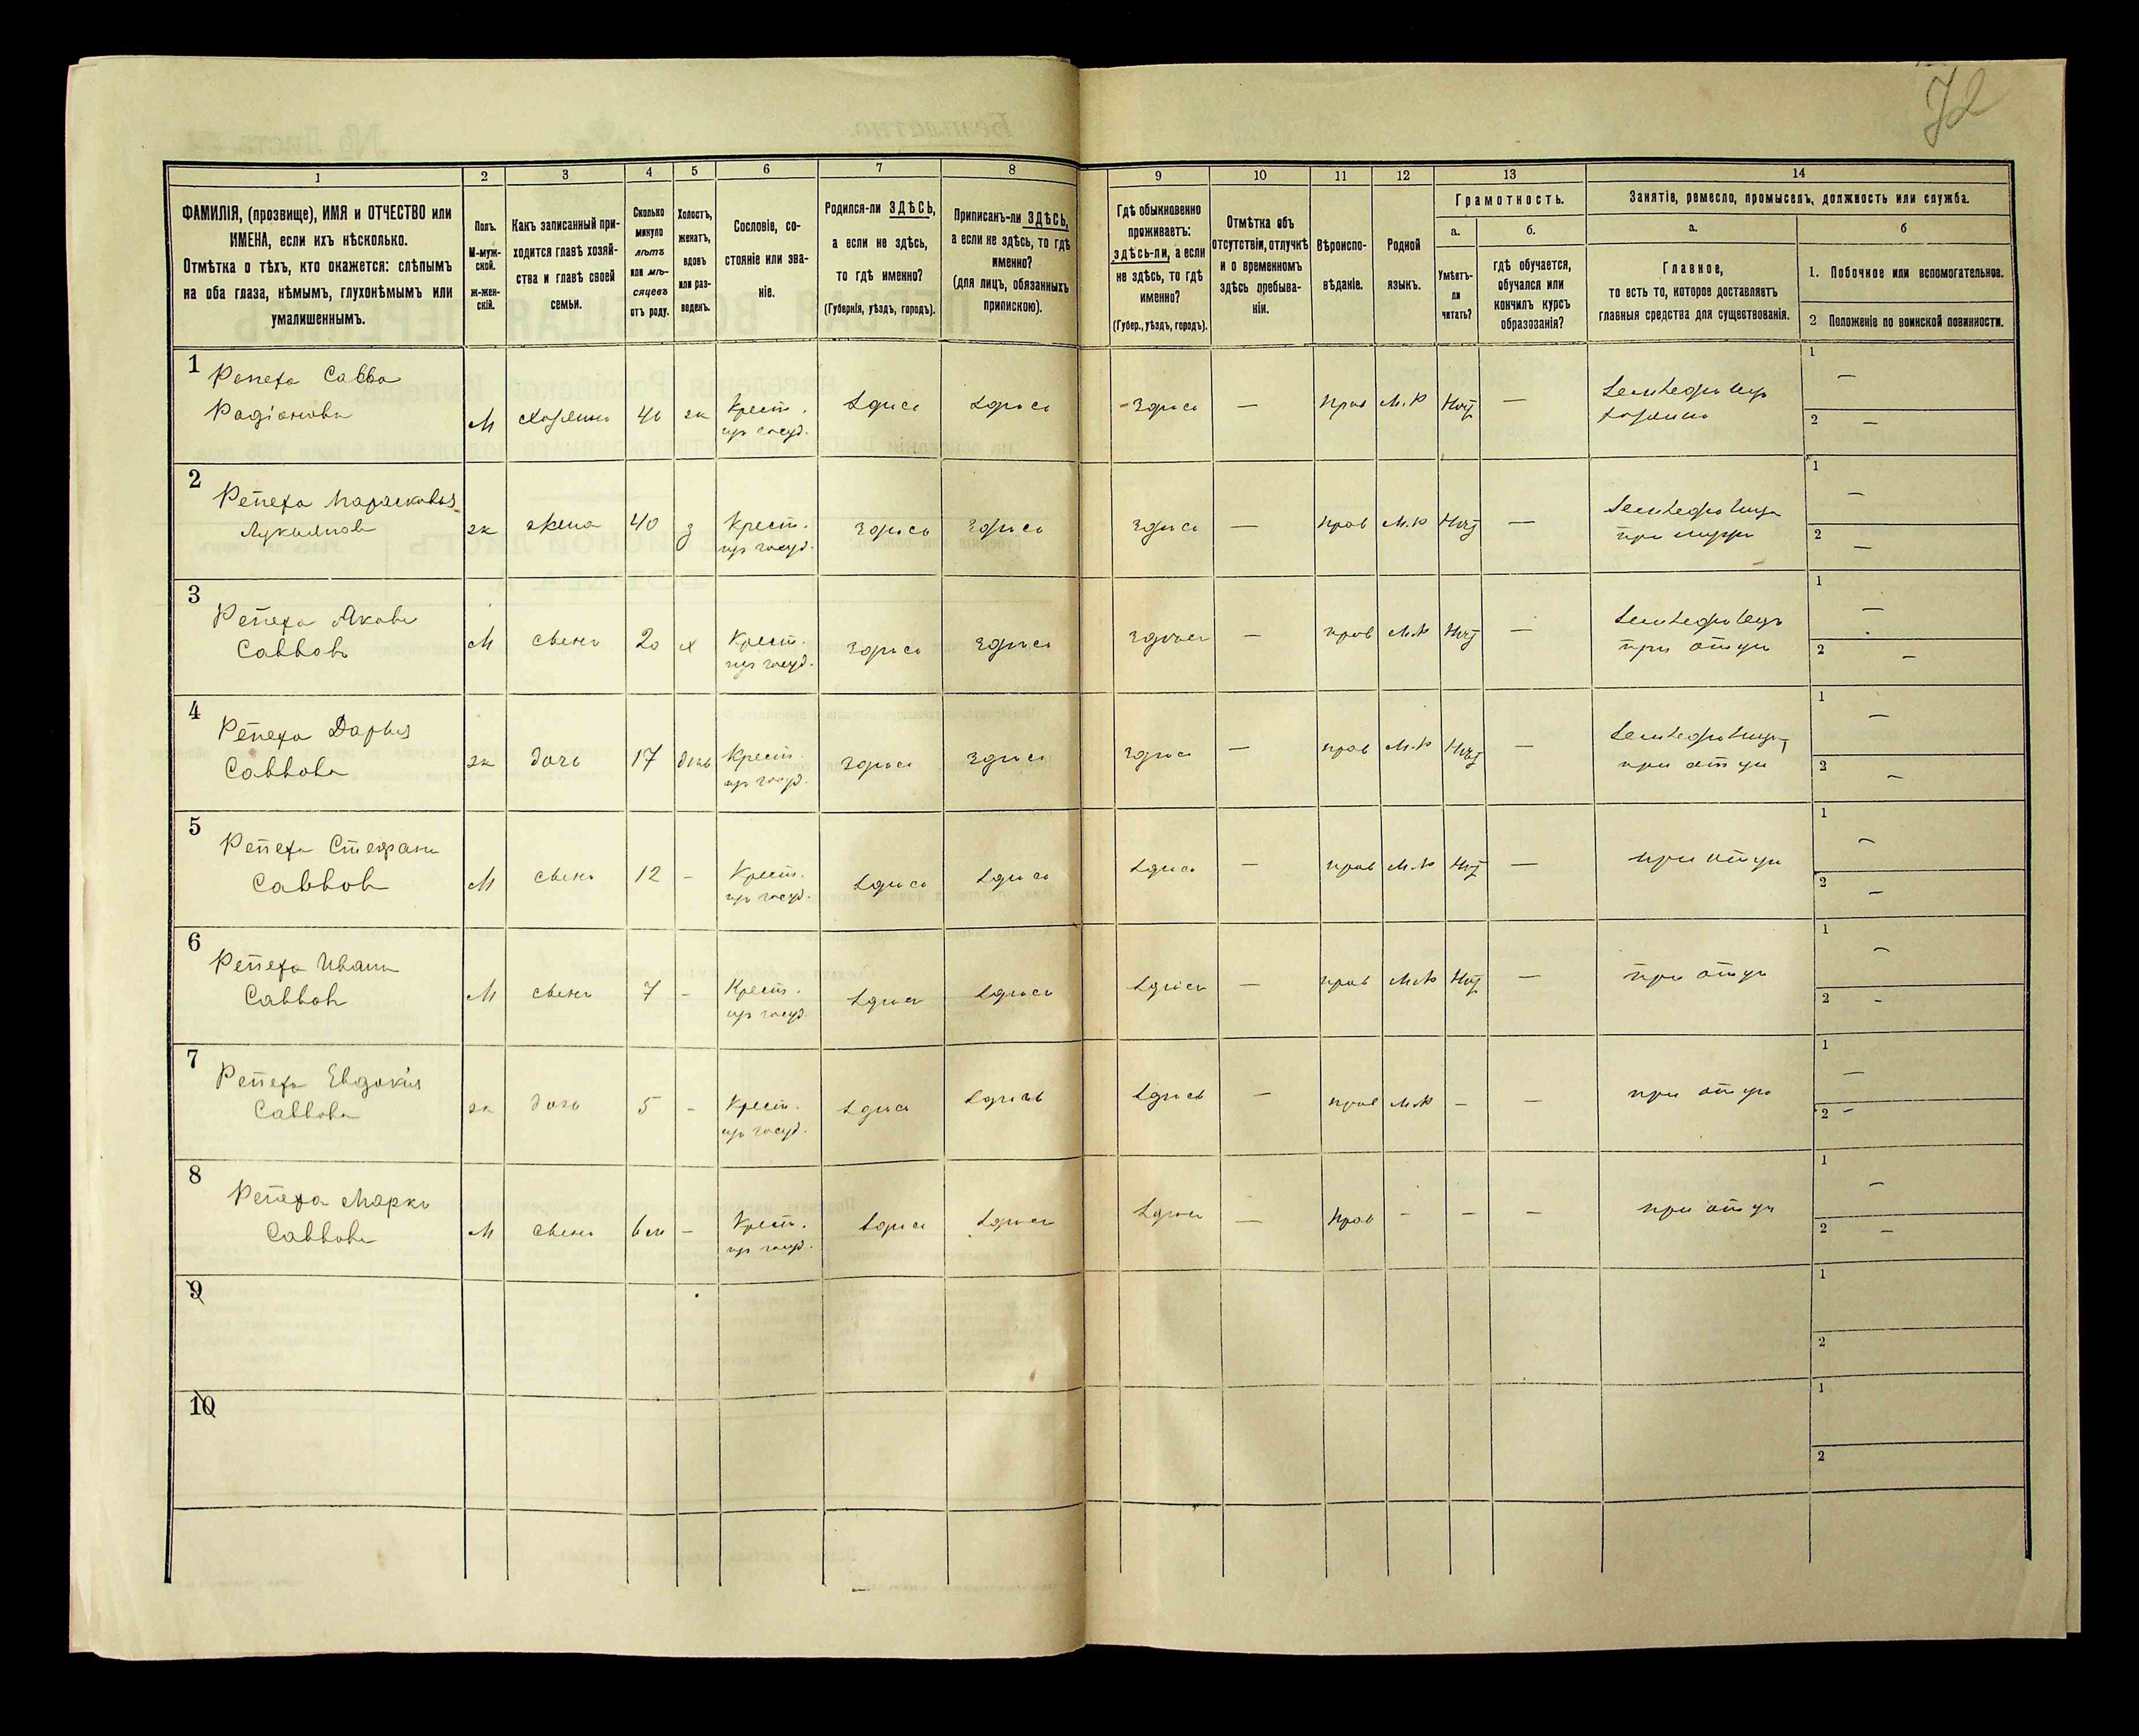 72
1 2 3 4 5 6 7 8 9 10 11 12 13 14
ФАМИЛІЯ, (прозвище), ИМЯ и ОТЧЕСТВО или
ИМЕНА, если ихъ нѣсколько.
Отмѣтка о тѣхъ, кто окажется: слѣпымъ
на оба глаза, нѣмымъ, глухонѣмымъ или
умалишеннымъ.
Полъ.
М-муж-
ской.
ж-жен-
скій.
Какъ записанный при-
ходится главѣ хозяй-
ства и главѣ своей
семьи.
Сколько
минуло
лѣтъ
или мѣ-
сяцевъ
отъ роду.
Холостъ,
женатъ,
вдовъ
или раз-
веденъ.
Сословіе, со-
стояніе или зва-
ніе.
Родился-ли ЗДѢСЬ,
а если не здѣсь,
то гдѣ именно?
(Губернія, уѣздъ, городъ).
Приписанъ-ли ЗДѢСЬ,
а если не здѣсь, то гдѣ
именно?
(для лицъ, обязанныхъ
припискою).
Гдѣ обыкновенно
проживаетъ:
здѣсь-ли, а если
не здѣсь, то гдѣ
именно?
(Губер., уѣздъ, городъ).
Отмѣтка объ
отсутствіи, отлучкѣ
и о временномъ
здѣсь пребыва-
ніи.
Вѣроиспо-
вѣданіе.
Родной
языкъ.
Грамотность.
а.
Умѣетъ-
ли
читать?
б.
гдѣ обучается,
обучался или
кончилъ курсъ
образованія?
Занятіе, ремесло, промыселъ, должность или служба.
а.
Главное,
то есть то, которое доставляетъ
главныя средства для существованія.
б
1. Побочное или вспомогательное.
2 Положеніе по воинской повинности.
1 Репеха Савва
Радіоновъ М хозяинъ 46 ж Крест. здѣсь здѣсь здѣсь — прав М.Р нѣт — земледѣлецъ
из госуд. хозяинъ
1 —
2 —
2 Репеха Парасковья
Лукьянов ж жена 40 з Крест. здѣсь здѣсь здѣсь — прав М.Р нѣт — земледѣлица
из госуд. при мужѣ
1 —
2 —
3 Репеха Яковъ
Саввовъ М сынъ 20 х Крест. здѣсь здѣсь здѣсь — прав М.Р нѣт — земледѣлецъ
из госуд. при отцѣ
1 —
2 —
4 Репеха Дарья
Саввова ж дочь 17 дѣв Крест. здѣсь здѣсь здѣсь — прав М.Р нѣт — земледѣлица
из госуд. при отцѣ
1 —
2 —
5 Репеха Стефанъ
Саввовъ М сынъ 12 - Крест. здѣсь здѣсь здѣсь — прав М.Р нѣт — при отцѣ
из госуд.
1 —
2 —
6 Репеха Иванъ
Саввовъ М сынъ 7 - Крест. здѣсь здѣсь здѣсь — прав М.Р нѣт — при отцѣ
из госуд.
1 —
2 -
7 Репеха Евдокія
Саввова ж дочь 5 - Крест. здѣсь здѣсь здѣсь — прав М.Р - - при отцѣ
из госуд.
1 —
2 —
8 Репеха Маркъ
Саввовъ М сынъ 6 м - Крест. здѣсь здѣсь здѣсь — прав - - - при отцѣ
из госуд.
1 —
2 —
9
1
2
10
1
2